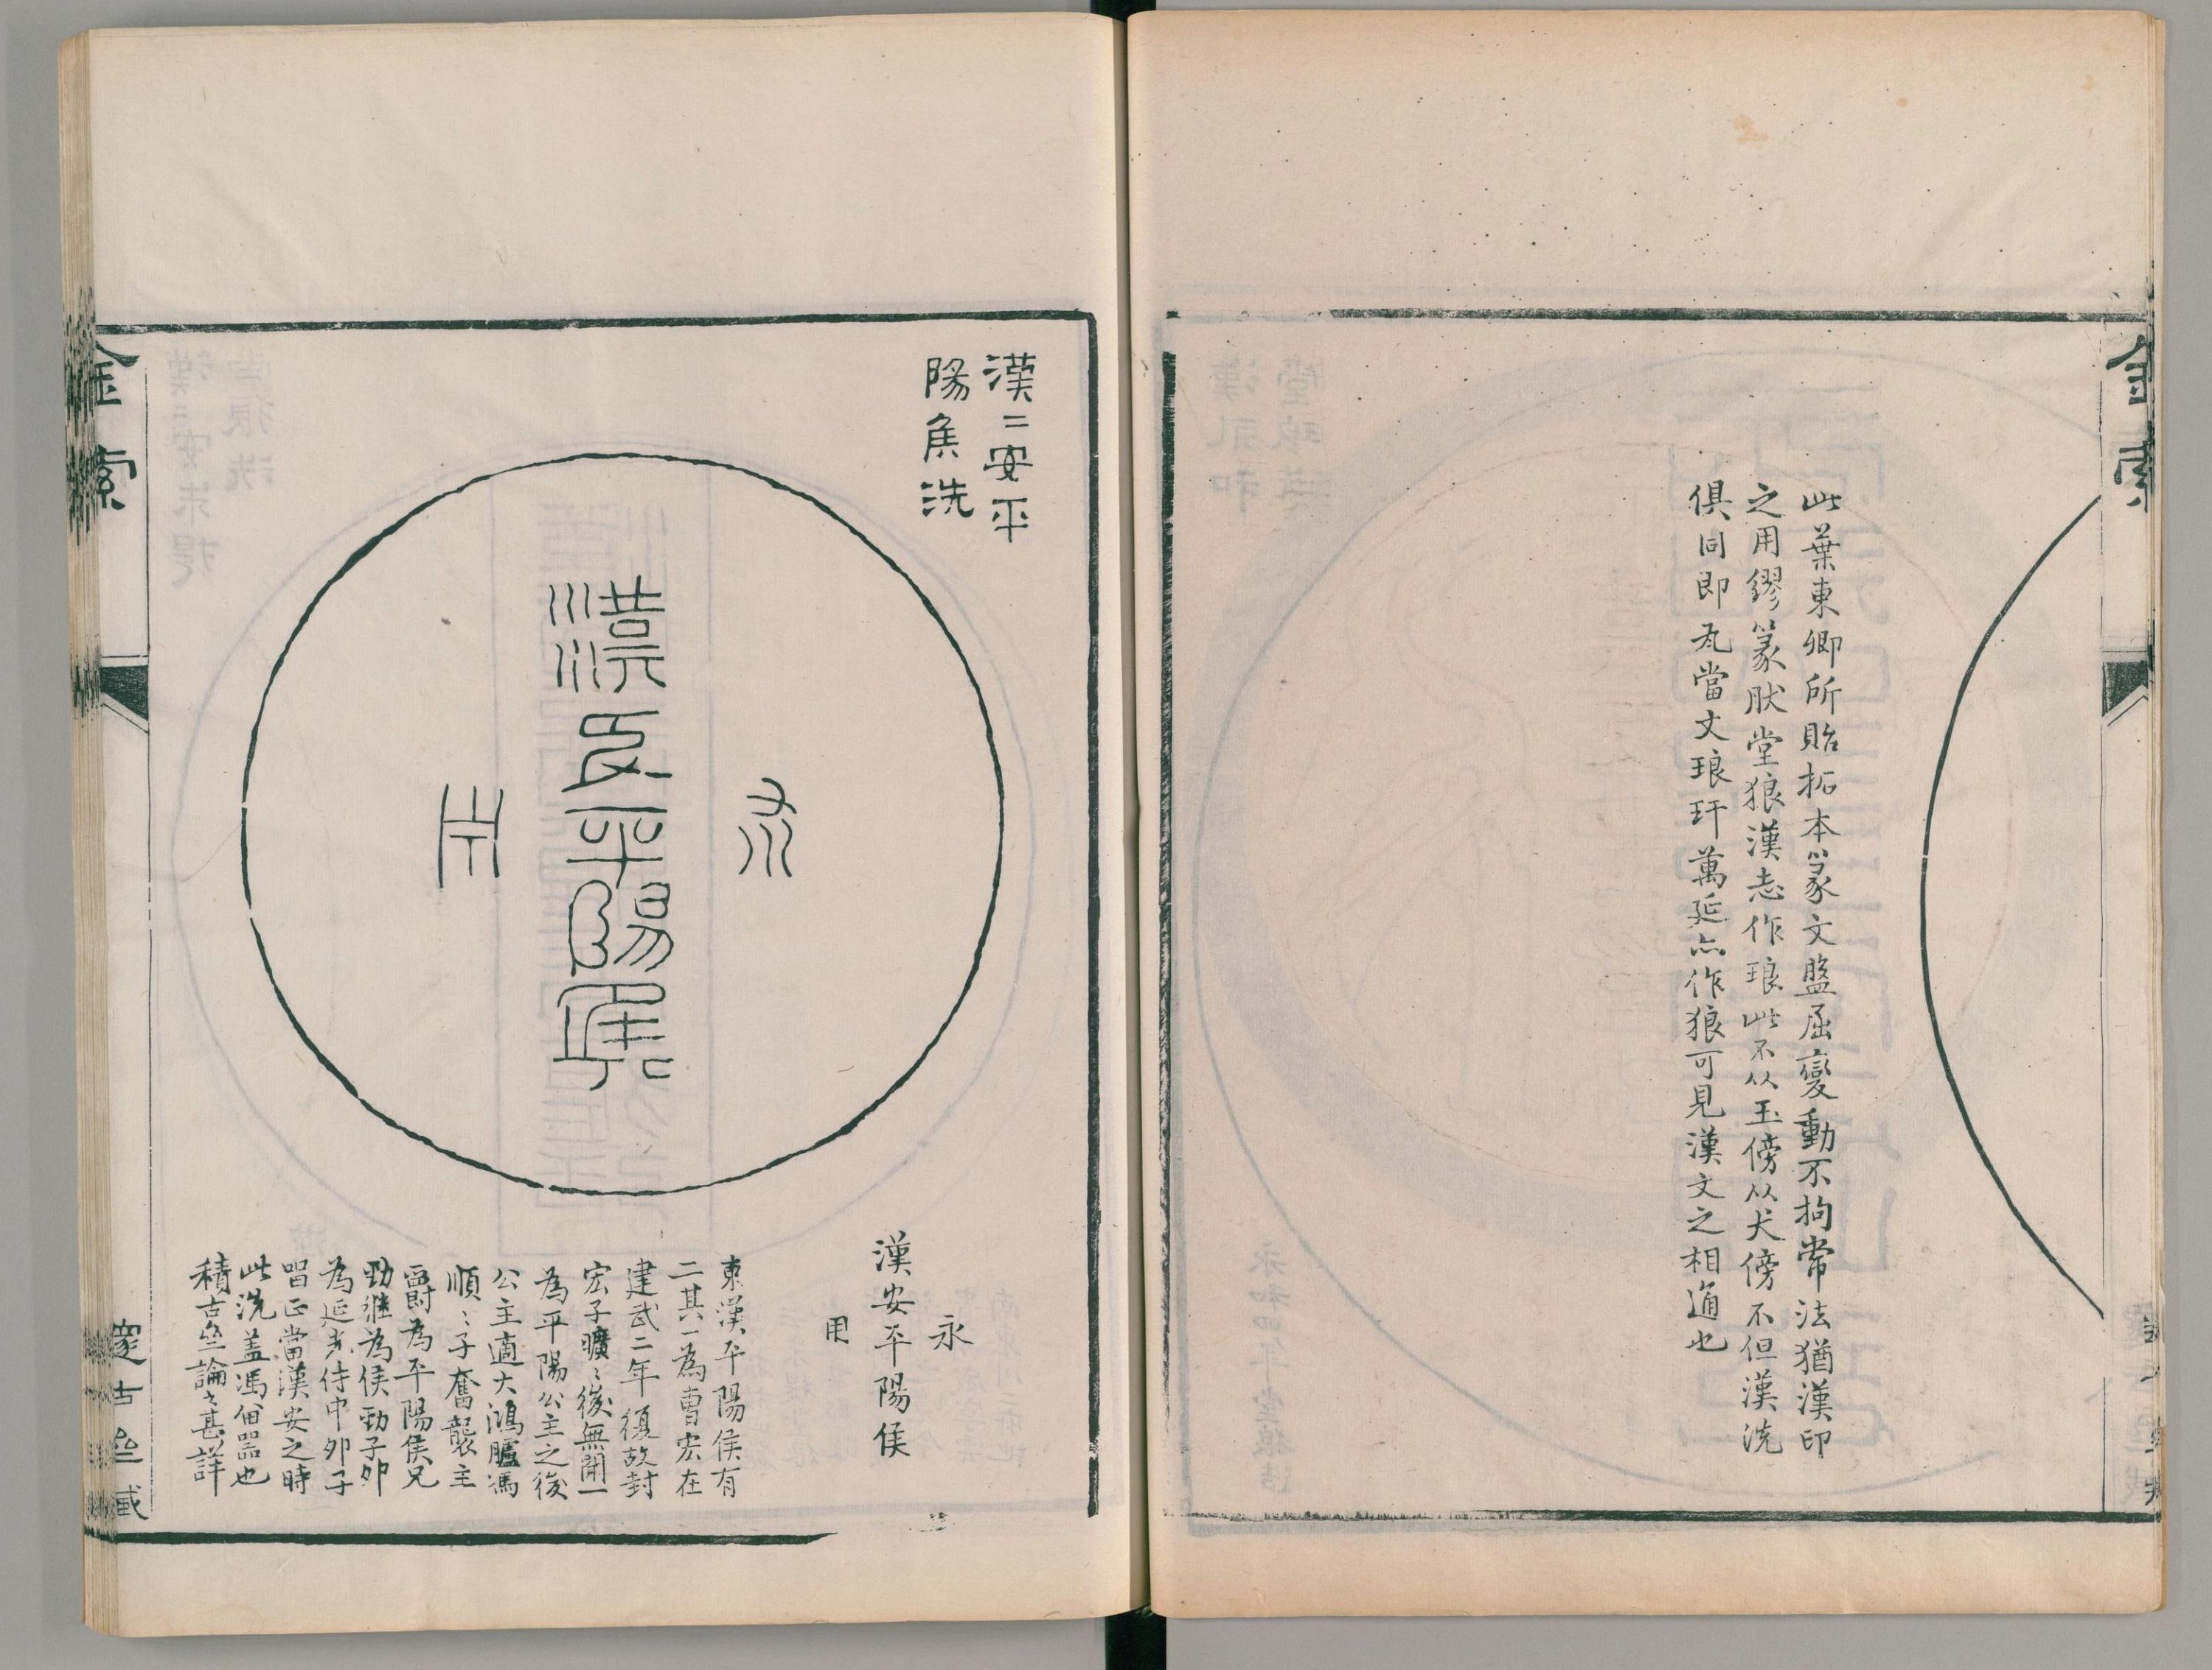 金索
此葉東卿所貽拓本篆文盤屈變動不拘常法猶漢印
之用繆篆肰堂狼漢志作琅此不从玉傍从犬傍不但漢洗
俱同即瓦當文琅玕萬延亦作狼可見漢文之相通也
漢二安平
陽矦洗
永
漢安平陽矦
用
永
漢安平陽侯
用
東漢平陽侯有
二其一為曹宏在
建武二年復故封
宏子曠〻後無聞一
為平陽公主之後
公主適大鴻臚馮
順〻子奮襲主
爵為平陽侯兄
勁繼為侯勁子卯
為延光侍中卯子
㽞正當漢安之時
此洗盖馮㽞器也
積古亝論之甚詳
金索
邃古亝藏